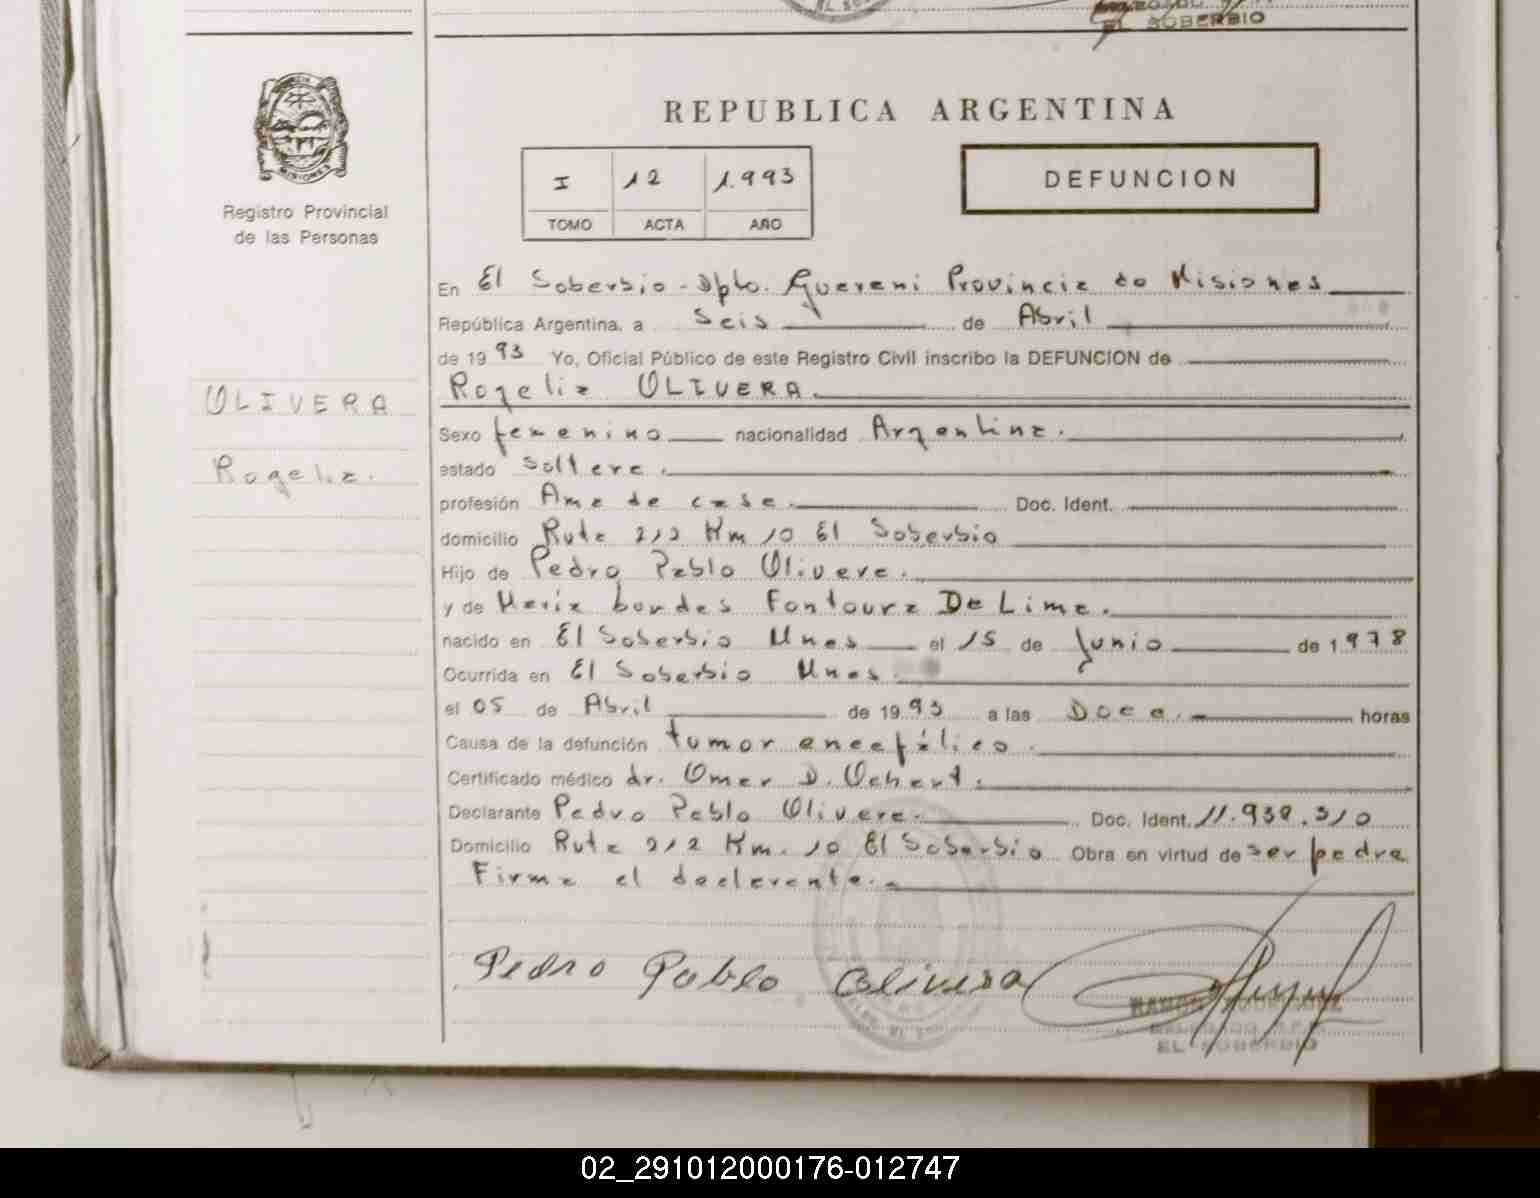 EL SOBERBIO
REPUBLICA ARGENTINA
MISIONES
Registro Provincial
de las Personas
I 12 1.993
TOMO ACTA AÑO
DEFUNCION
En El Soberbio - Dpto. Guarani Provincia de Misiones
República Argentina, a Seis de Abril
de 1993 Yo, Oficial Público de este Registro Civil inscribo la DEFUNCION de
Rogelia OLIVERA
OLIVERA
Rogelia.
Sexo femenino nacionalidad Argentina.
estado Soltera.
profesión Ama de casa. Doc. Ident.
domicilio Ruta 212 Km 10 El Soberbio
Hijo de Pedro Pablo Olivera.
y de Maria bordes Fontoura De Lima.
nacido en El Soberbio Mnes el 15 de Junio de 1978
Ocurrida en El Soberbio Mnes.
el 05 de Abril de 1993 a las Doce. horas
Causa de la defunción tumor encefálico.
Certificado médico dr. Omar D.
Declarante Pedro Pablo Olivera. Doc. Ident. 11.938.310
Domicilio Ruta 212 Km. 10 El Soberbio Obra en virtud de ser padre
Firma el declarante.
Pedro Pablo Olivera
EL SOBERBIO
02_291012000176-012747